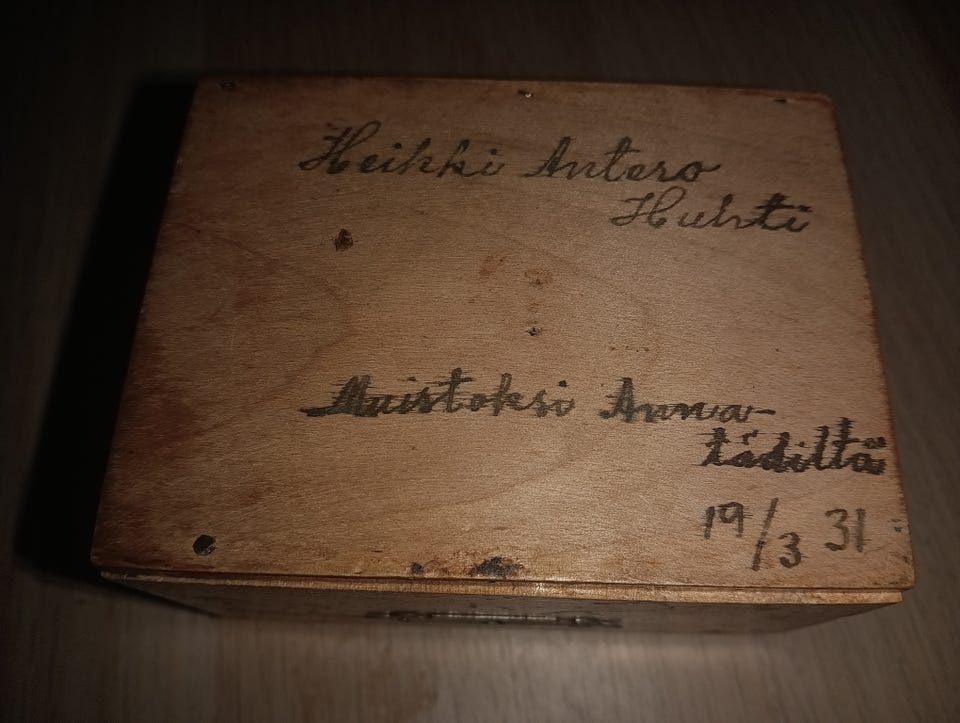 Heikki Antero
Huhti
Muistoksi Anna-
tädiltä
19/3 31